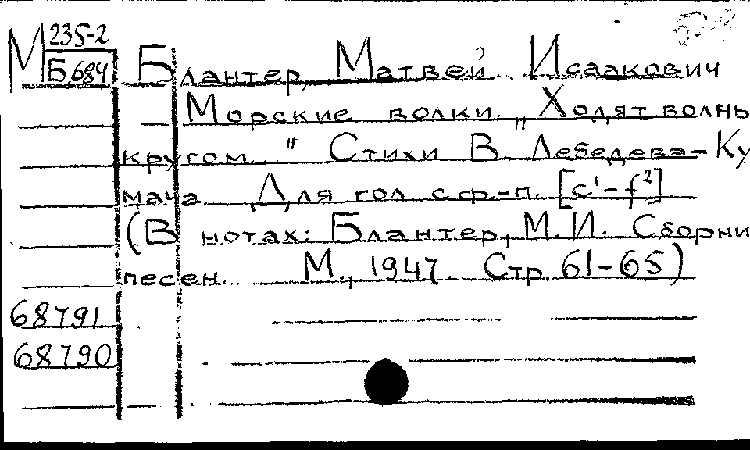 М 235-2
Б684 Блантер, Матвей Исаакович
Морские волки. „Ходят волны
кругом..." Стихи В. Лебедева-Ку
мача. Для гол. с ф.-п. [c¹-f²]
(В нотах: Блантер, М.И. Сборни
песен. М., 1947. Стр. 61-65)
68791
68790